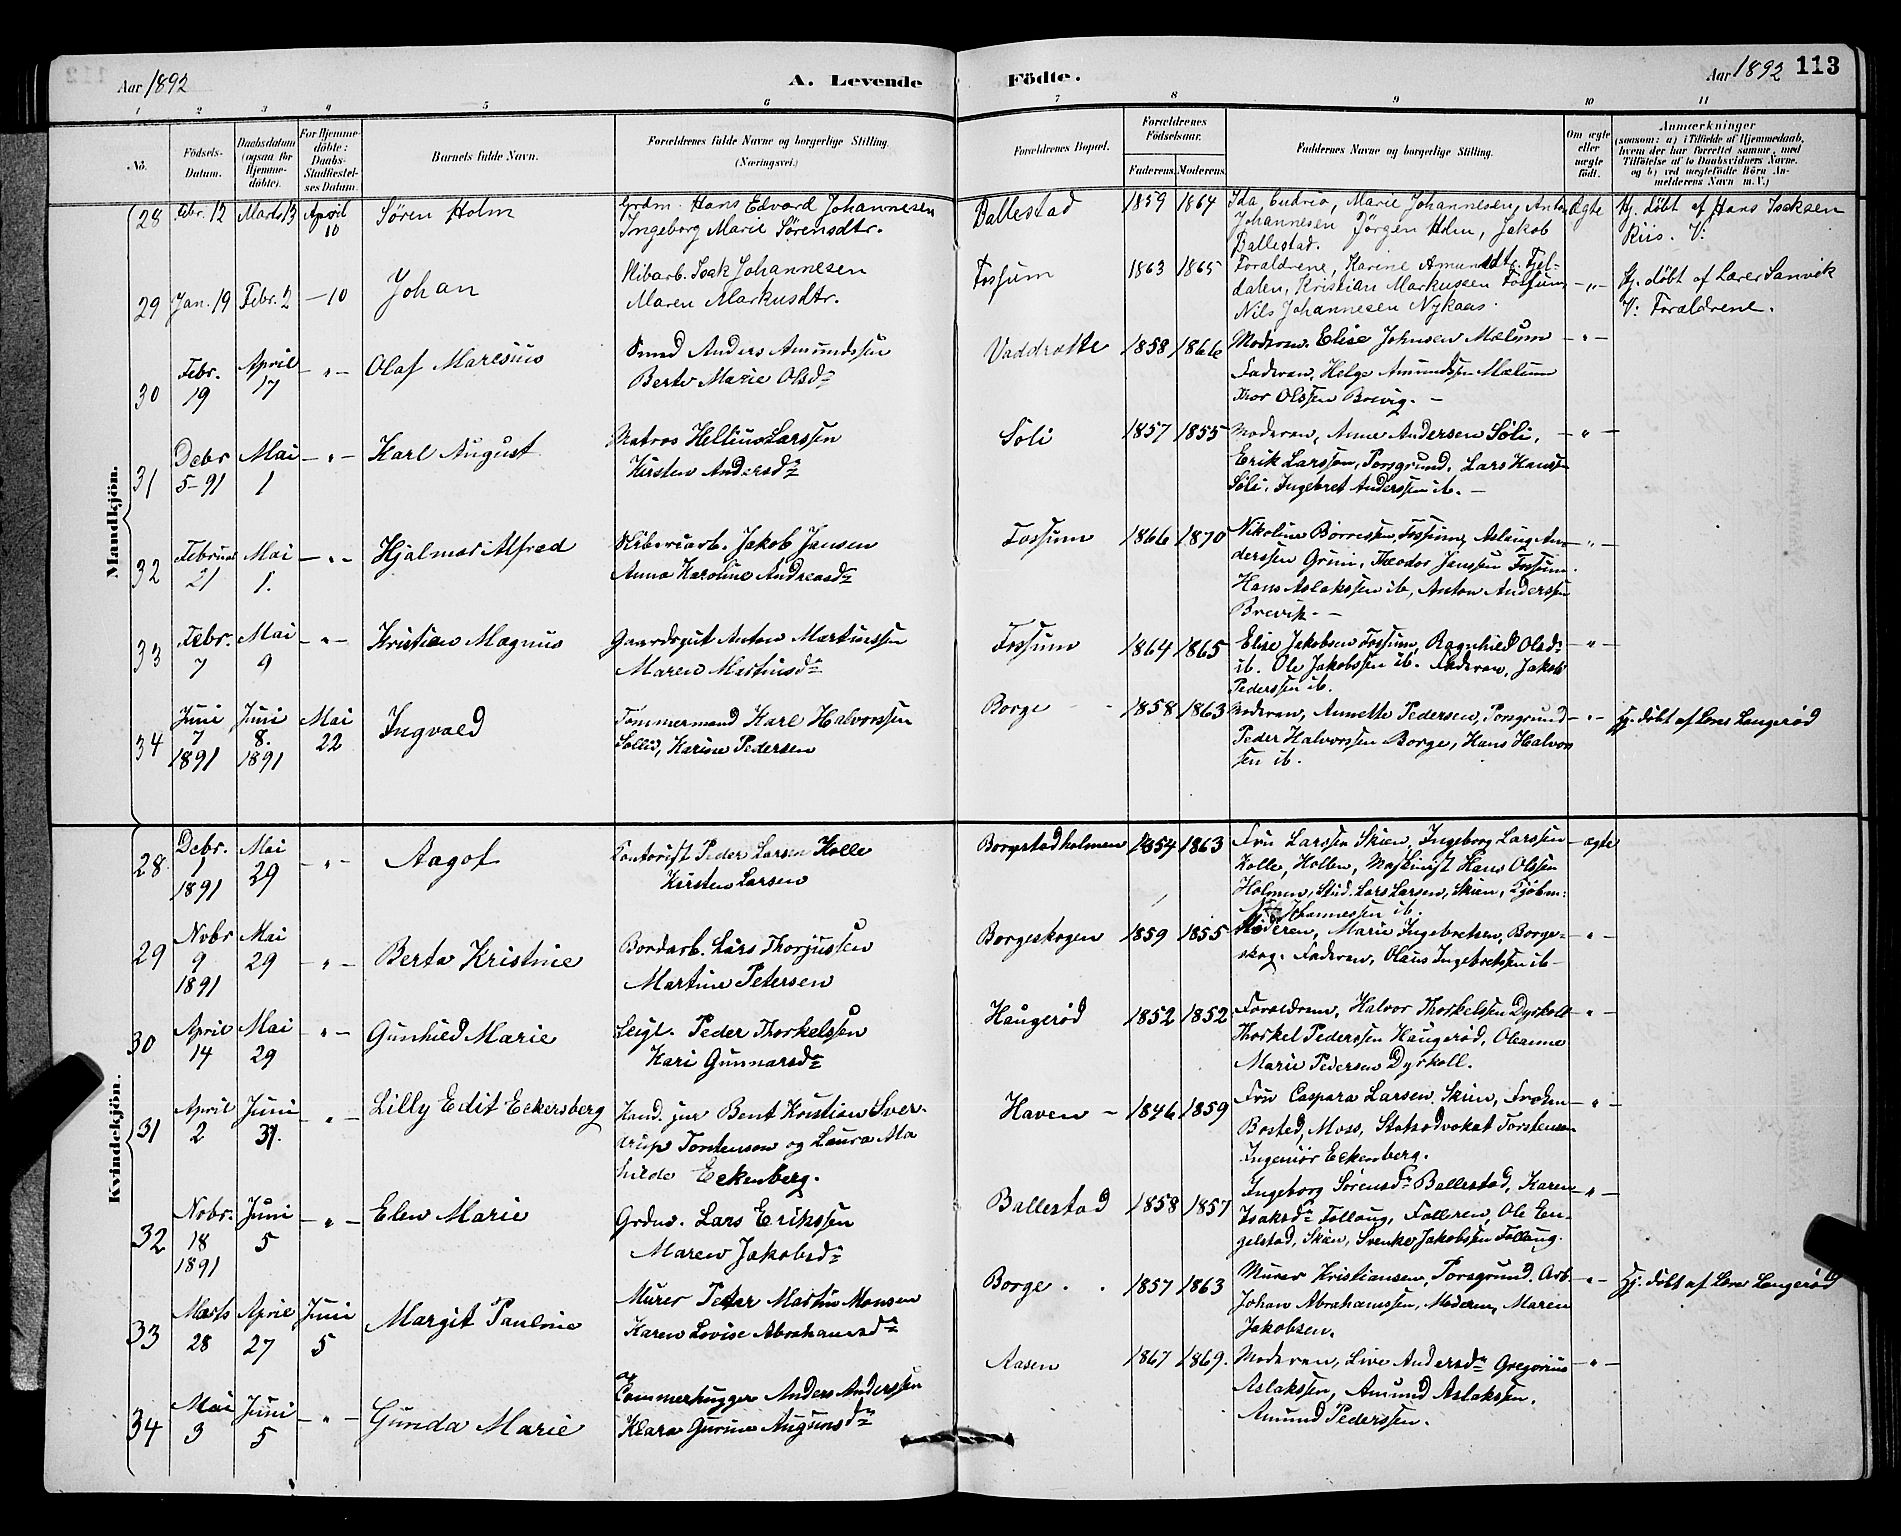 Aar 1892
A. Levende
Födte.
Aar 1892 113
1 2 3 4 5 6 7 8 9 10 11
No.
Födsels-Datum.
Daabsdatum (ogsaa for Hjemmedöbte).
For Hjemmedöbte: Daabs-Stadfæstelses Datum.
Barnets fulde Navn.
Forældrenes fulde Navne og borgerlige Stilling. (Næringsvei.)
Forældrenes Bopæl.
Forældrenes Födselsaar.
Faderens. Moderens.
Faddernes Navne og borgerlige Stilling.
Om ægte eller uægte födt.
Anmærkninger
(saasom: a) i Tilfælde af Hjemmedaab, hvem der har forrettet samme, med Tilföielse af to Daabsvidners Navne. og b) ved uægtefödte Börn Anmelderens Navn m. V.)
Mandkjön.
28 Febr. 12 Marts 13 April 10 Søren Holm Grdm. Hans Edvard Johannesen
Ingeborg Marie Sørensdtr. Ballestad 1859 1864 Ida, Marie Johannesen, Anton
Johannesen Jörgen Holm, Jakob
Ballestad. Ægte Hj. døbt af Hans Isaksen
Riis. V:
29 Jan. 19 Febr. 2 — 10 Johan Isak Johannesen
Maren Markusdtr. Fossum 1863 1865 Forældrene, Karine Amundsdtr. Fjel-
dalen, Kristian Markussen Fossum,
Nils Johannesen Nykaas. —"— Hj. døbt af Lærer Sanvik
V: Forældrene.
30 Febr. 19 April 17 —"— Olaf Marcsius Smed Anders Amundssen
Berte Marie Olsdr Vaddrotte 1858 1866 Moderen, Elise Johnsen Mælum
Faderen, Helge Amundssen Mælum
Thor Olssen Brevig. — —"—
31 Debr 5-91 Mai 1 —"— Karl August Matros Larssen
Kirsten Andersdr Søli 1857 1855 Moderen, Anne Andersen Søli,
Erik Larssen, Porsgrund, Lars Hanssen
Søli, Ingebret Anderssen ib. — —"—
32 Februar 21 Mai 1. —"— Hjalmar Alfred Jakob Jansen
Anna Karoline Andreasdr Fossum 1866 1870 Nikoline Börresen, Fossum, Aslaug An-
derssen Grini, Theodor Janssen Fossum.
Hans Aslakssen ib, Anton Anderssen
Brevik. — —"—
33 Febr. 7 Mai 9 —"— Kristian Magnus Gaardsgut Anton Martinssen
Maren Martinsdr Fossum 1864 1865 Elise Jakobsen Fossum, Ragnhild Olsdr
ib. Ole Jakobssen ib. Faderen, Jakob
Pederssen ib. —"—
34 Juni 7 1891 Juni 8. 1891 Mai 22 Ingvald Tømmermand Karl Halvorssen
Karine Pedersen Borge 1858 1863 Moderen, Annette Pedersen, Porsgrund
Peder Halvorssen Borge, Hans Halvors
sen ib. —"— Hj. døbt af Lærer Langerød
Kvindekjön.
28. Debr. 1 1891 Mai 29 —"— Aagot Kontorist Peder Larsen Kolle
Kirsten Larsen Borgestadholmen 1854 1863 Fru Larssen Skien, Ingeborg Larssen
Kolle, Hollen, Maskinist Hans Olssen
Holmen, Stud. Lars Larsen, Skien, Kjöbm:
Johannessen ib. ægte
29 Nobr 9 1891 Mai 29 —"— Berta Kristine Bordarb. Lars Thorjussen
Martine Petersen Borgeskogen 1859 1855 Moderen, Marie Ingebretsen, Borge-
skog. Faderen, Olaus Ingebretssen ib — —"—
30 April 14 Mai 29 —"— Gunhild Marie Leigl. Peder Thorkelssen
Kari Gunnarsdr Haugerød 1852 1852 Forældrene, Halvor Thorkelssen Dyrkoll
Thorkel Pederssen Haugerød, Oleanne
Marie Pedersen Dyrkoll. —"—
31 April 2 Juni 31. —"— Lilly Edit Eckersberg Kand. jur Bent Kristian Sver-
drup Torstenson og Laura Ma
thilde Eckersberg. Haven — 1846 1859 Fru Caspara Larsen, Skien, Frøken
Bosted, Moss, Statsadvokat Torstenson
Ingeniør Eckersberg. —"—
32 Nobr. 18 1891 Juni 5 —"— Elen Marie Grdm. Lars Erikssen
Maren Jakobsdr Ballestad 1858 1857 Ingeborg Sörensdr Ballestad, Karen
Isaksdr Follaug, Faderen, Ole En-
gelstad, Skien, Svenke Jakobssen Follaug. —"—
33 Marts 28 April 27 Juni 5 Margit Pauline Murer Peter Martin Monsen
Karen Lovise Abrahamsdr Borge. 1857 1863 Murer Kristiansen, Porsgrund. Arb.
Johan Abrahamssen, Moderen, Maren
Jakobsen. —"— Hj. døbt af Lærer Langerød
34 Mai 3 Juni 5 —"— Gunda Marie Tømmerhugger Anders Anderssen
Klara Gurine Augunsdr Aasen 1867 1869. Moderen, Live Andersdr Gregorius
Aslakssen, Amund Aslaksen.
Amund Pederssen. —"—